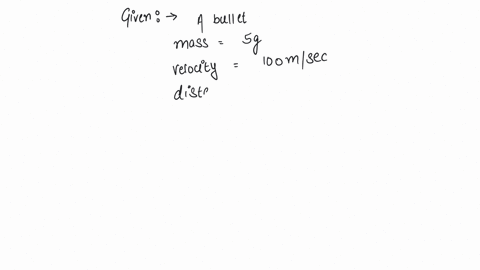 Given:→ A bullet
mass = 5g
velocity = 100m/sec
dist